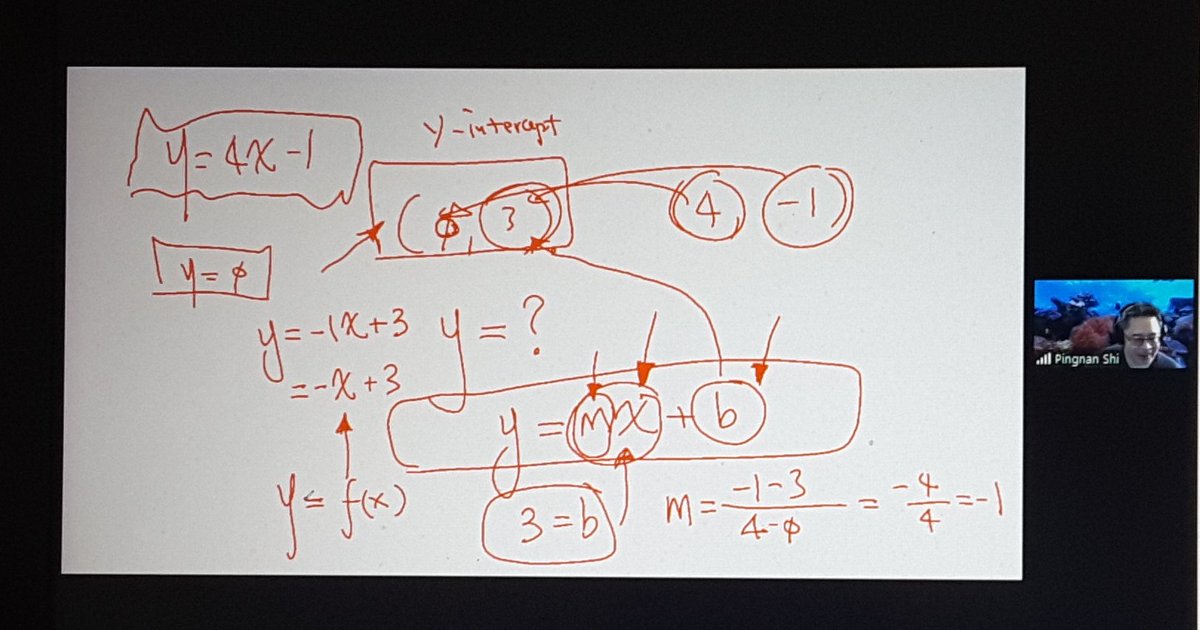 y = 4x - 1
y-intercept
(φ, 3) (4, -1)
y = φ
y = -1x + 3
= -x + 3
y = ?
y = mx + b
y = f(x)
3 = b
m = \frac{-1-3}{4-φ} = \frac{-4}{4} = -1
Pingnan Shi